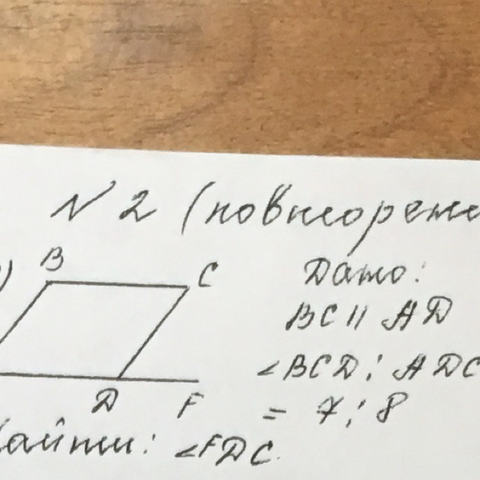 № 2 (повторени
) B
C
Дано:
BC || AD
∠BCD : ADC
D F
= 7 : 8
Найти: ∠FDC.